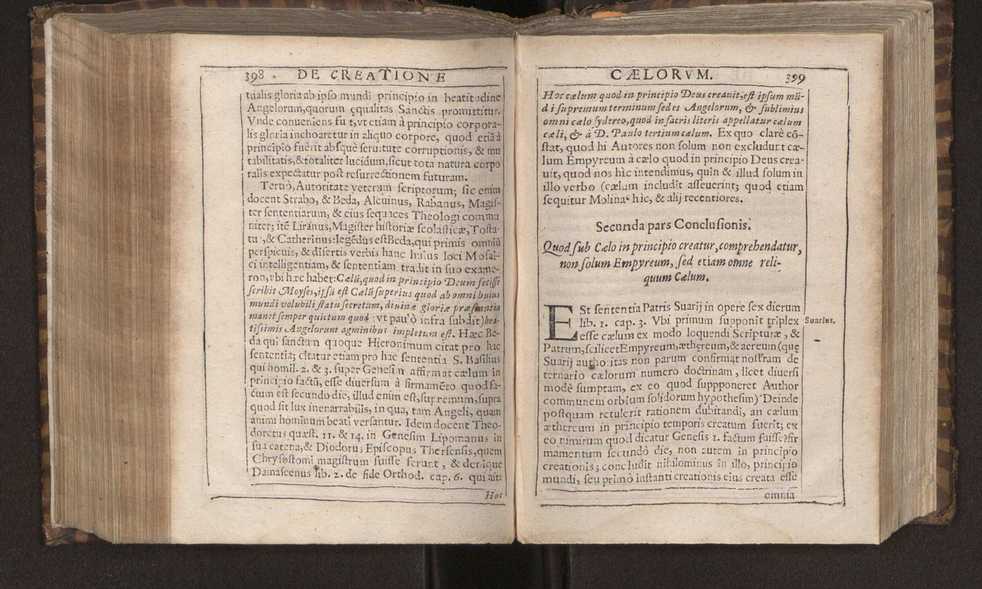 398 . DE CREATIONE
tualis gloria ab ipso mundi principio in beatitudine
Angelorum, quorum ęqualitas Sanctis promittitur.
Vnde conueniens fuit, vt etiam à principio corpora-
lis gloria inchoaretur in aliquo corpore, quod etiã à
principio fuerit absque seruitute corruptionis, & mu
tabilitatis, & totaliter lucidum, sicut tota natura corpo
ralis expectatur post resurrectionem futuram.
Tertiò, Autoritate veterum scriptorum; sic enim
docent Strabo, & Beda, Alcuinus, Rabanus, Magis-
ter sententiarum, & eius sequaces Theologi commu
niter; itẽ Liranus, Magister historiæ scolasticæ, Tosta-
tus, & Catherinus: legẽdus est Beda, qui primus omniũ
perspicuis, & disertis verbis hanc huius loci Mosai-
ci intelligentiam, & sententiam tradit in suo exame-
ron, vbi hęc habet: Cælũ, quod in principio Deum fecisse
scribit Moyses, ipsũ est Cælũ superius quod ab omni huius
mundi volubili statu secretum, diuinæ gloriæ præsentia
manet semper quietum quod (vt paulò infra subdit) bea-
tissimis Angelorum agminibus impletum est. Hæc Be-
da qui sanctum quoque Hieronimum citat pro hac
sententia; citatur etiam pro hac sententia S. Basilius
qui homil. 2. & 3. super Genesin affirmat cælum in
principio factũ, esse diuersum à firmamẽto quod fa-
ctum est secundo die, illud enim est, supremum, supra
quod sit lux inenarrabilis, in qua, tam Angeli, quam
animi hominum beati versantur. Idem docent Theo-
doretus quæst. 11. & 14. in Genesim Lipomanus in
sua catena, & Diodorus Episcopus Thersensis, quem
Chrysostomi magistrum fuisse ferunt, & denique
Damascenus lib. 2. de fide Orthod. cap. 6. qui ait:
Hoc
CÆLORVM. 399
Hoc cælum quod in principio Deus creauit, est ipsum mũ-
di supremum terminum sedes Angelorum, & sublimius
omni cælo sydereo, quod in sacris literis appellatur cælum
cæli, & à D. Paulo tertium cælum. Ex quo clarè cõ-
stat, quod hi Autores non solum non excludut cæ-
lum Empyreum à cælo quod in principio Deus crea-
uit, quod nos hìc intendimus, quin & illud solum in
illo verbo (cælum includit asseuerint; quod etiam
sequitur Molina hic, & alij recentiores.
Secunda pars Conclusionis.
Quod sub Cælo in principio creatur, comprehendatur,
non solum Empyreum, sed etiam omne reli-
quum Cælum.
ESt sententia Patris Suarij in opere sex dierum
lib. 1. cap. 3. Vbi primum supponit triplex
esse cælum ex modo loquendi Scripturæ, &
Patrum, scilicet Empyreum, æthereum, & aereum (que
Suarij authoritas non parum confirmat nostram de
ternario cælorum numero doctrinam, licet diuersi
modè sumptam, ex eo quod suppponeret Author
communem orbium solidorum hypothesim) Deinde
postquam retulerit rationem dubitandi, an cælum
æthereum in principio temporis creatum fuerit; ex
eo nimirum quod dicatur Genesis 1. factum fuisse fir
mamentum secundò die, non autem in principio
creationis; concludit nihilominus in illo, principio
mundi, seu primò instanti creationis eius creata esse
omnia
Suarius.